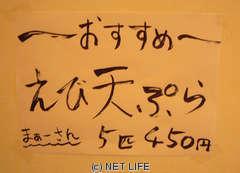 〜おすすめ〜
えび天ぷら
まぁーさん 5匹 450円
(c) NET LIFE